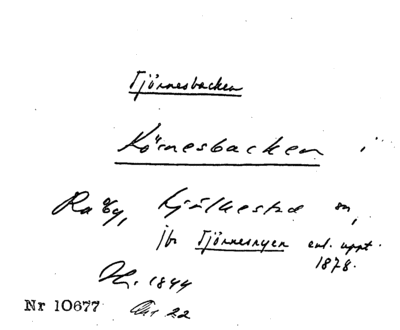 Tjörnesbacken
Körnesbacken i
Råby, Kjulkesta sn,
jfr Tjörnesnyen enl. uppt.
1878.
1844
Nr 10677 22